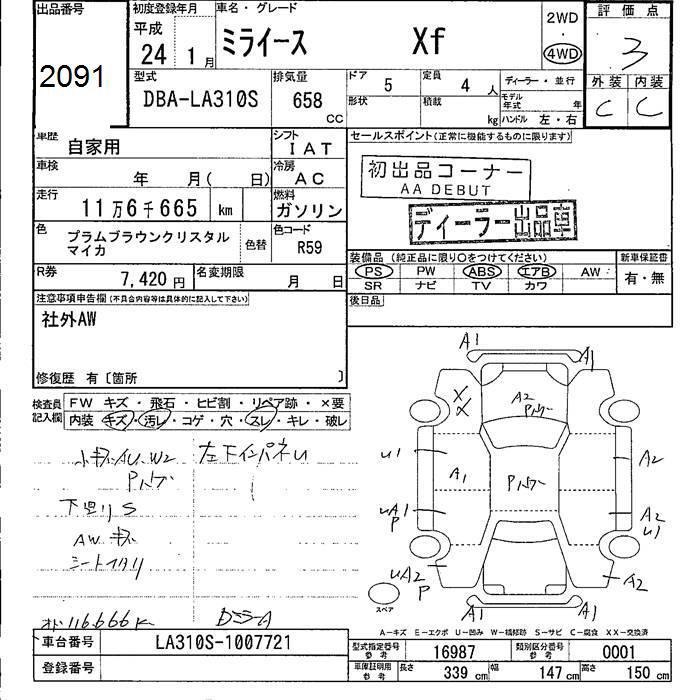 出品番号
2091
初度登録年月
平成
24 1月
車名・グレード
ミライース Xf
2WD
・
4WD
評価点
3
外装 内装
C C
型式
DBA-LA310S
排気量
658
CC
ドア
5
定員
4人
形状
積載
kg
ディーラー・並行
モデル年式 年
ハンドル 左・右
車歴
自家用
シフト
IAT
車検
年 月( 日)
冷房
AC
走行
11万6千665 km
燃料
ガソリン
色
プラムブラウンクリスタル
マイカ
色替
色コード
R59
R券
7,420円
名変期限
月 日
セールスポイント(正常に機能するものに限ります)
初出品コーナー
AA DEBUT
ディーラー出品車
装備品 (純正品に限り○をつけてください)
PS PW ABS エアB AW・
SR ナビ TV カワ
新車保証書
有・無
後日品
注意事項申告欄(不具合内容等は具体的に記入して下さい)
社外AW
修復歴 有〔箇所 〕
検査員
記入欄
FW キズ・飛石・ヒビ割・リペア跡・×要
内装 キズ・汚レ・コゲ・穴・スレ・キレ・破レ
小キズAU.W2 左下インパネU
Pハゲ
下回りS
AWキズ
116.666K
A1
A1
X
X
A2
Pハゲ
U1
A1
Pハゲ
A2
UA1
P
A2
U1
UA2
P
A2
A1
A1
スペア
A-キズ E-エクボ U-凹み W-補修跡 S-サビ C-腐食 XX-交換済
車台番号
LA310S-1007721
登録番号
型式指定番号
参考
16987
類別区分番号
参考
0001
車庫証明用
参考
長さ
339 cm
幅
147 cm
高さ
150 cm